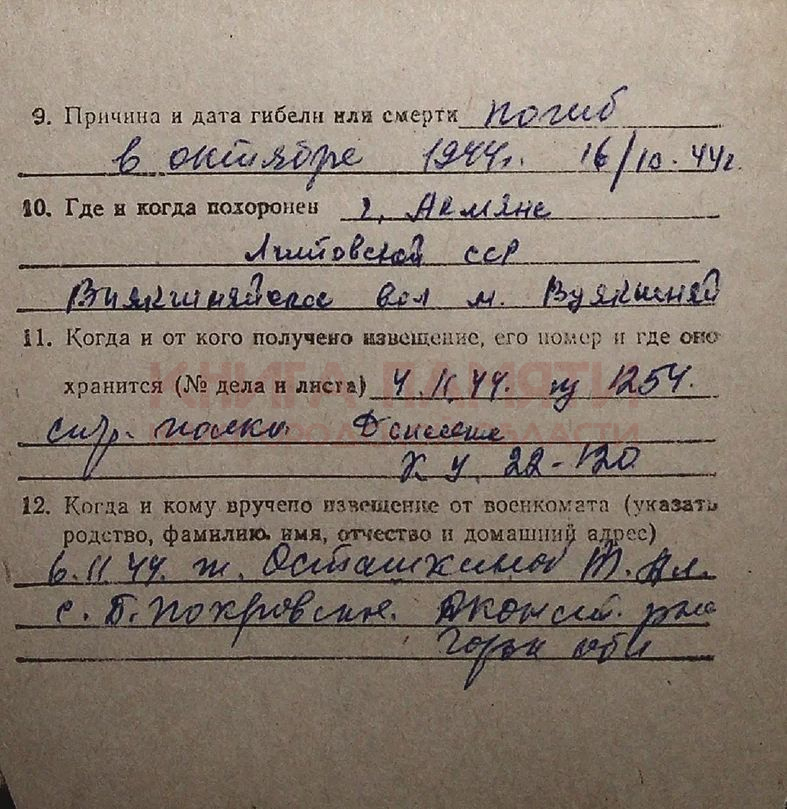 9. Причина и дата гибели или смерти погиб
в октябре 1944г. 16/10.44г.
10. Где и когда похоронен
Литовской ССР
вол м.
11. Когда и от кого получено извещение, его номер и где оно
КНИГА ПАМЯТИ
хранится (№ дела и листа) 4.11.44. из 1254.
стр. полка Донесение
ОБЛАСТИ
22-120
12. Когда и кому вручено извещение от военкомата (указать
родство, фамилию, имя, отчество и домашний адрес)
6.11.44. ж. Осташкиной Т. Ал.
с. Б. Покровское.
Горьк обл